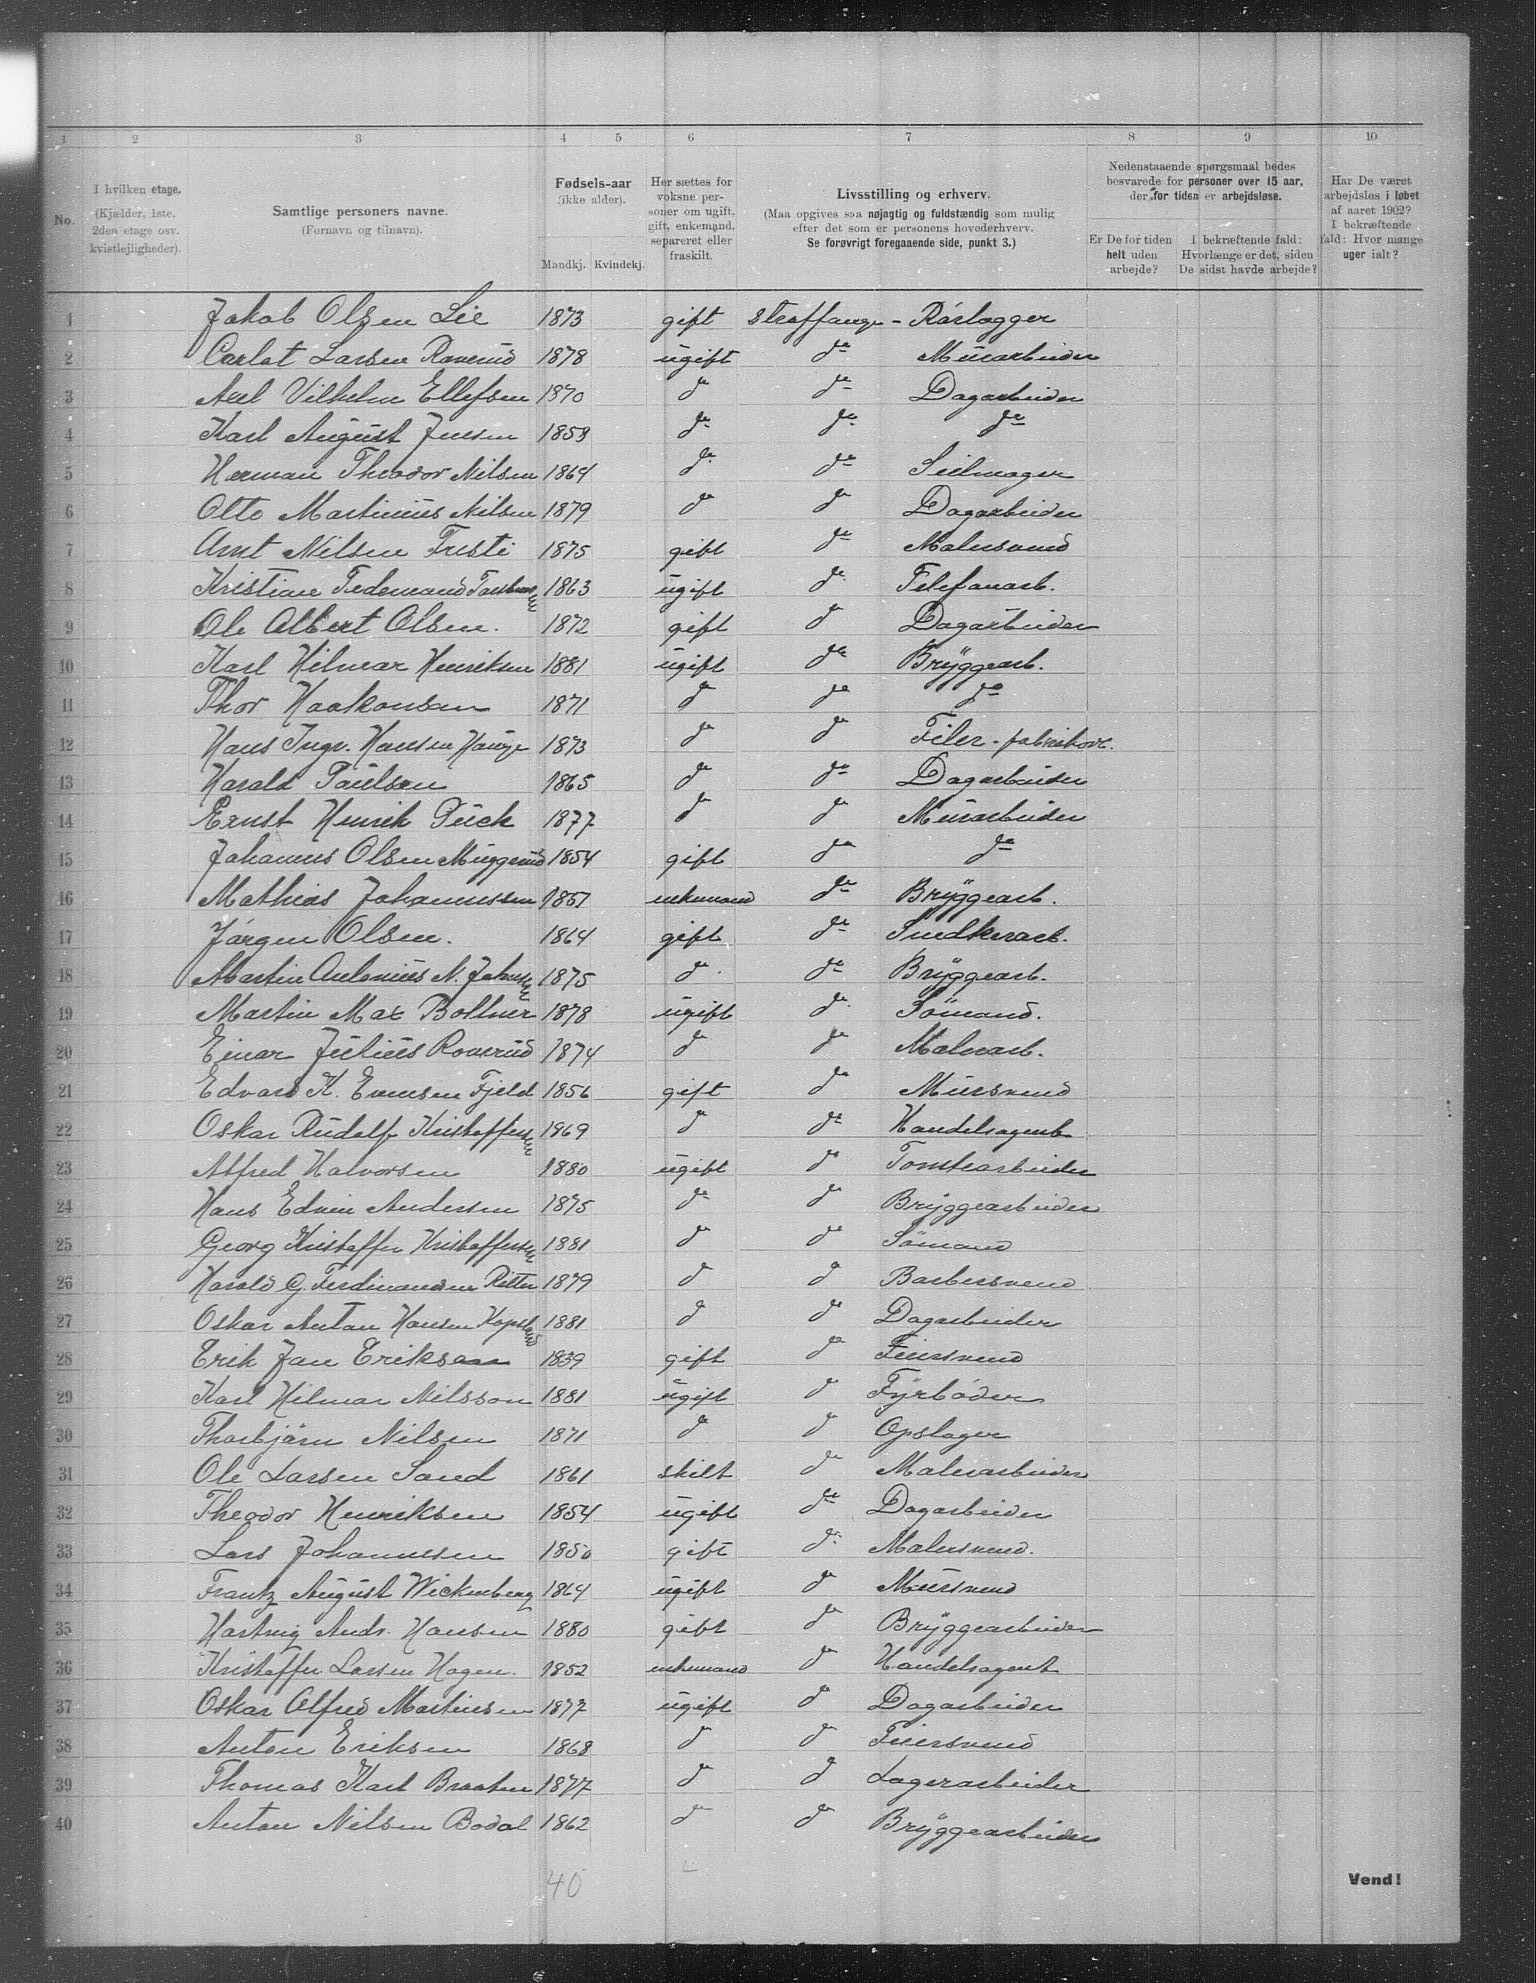 1 2 3 4 5 6 7 8 9 10
No.
I hvilken etage.
(Kjælder, 1ste,
2den etage osv.
kvistlejligheder).
Samtlige personers navne.
(Fornavn og tilnavn).
Fødsels-aar
(ikke alder).
Mandkj. Kvindekj.
Her sættes for
voksne per-
soner om ugift,
gift, enkemand,
separeret eller
fraskilt.
Livsstilling og erhverv.
(Maa opgives saa nøjagtig og fuldstændig som mulig
efter det som er personens hovederhverv.
Se forøvrigt foregaaende side, punkt 3.)
Nedenstaaende spørgsmaal bedes
besvarede for personer over 15 aar,
der for tiden er arbejdsløse.
Er De for tiden
helt uden
arbejde?
I bekræftende fald:
Hvorlænge er det, siden
De sidst havde arbejde?
Har De været
arbejdsløs i løbet
af aaret 1902?
I bekræftende
fald: Hvor mange
uger ialt?
1 Jakob Olsen Lie 1873 gift straffange - Rörlægger
2 Carlot Larsen Roverud 1878 ugift do Murarbeider
3 Axel Vilhelm Ellefsen 1870 do do Dagarbeider
4 Karl August Jensen 1853 do do do
5 Herman Theodor Nilsen 1864 do do Seilmager
6 Otto Martinius Nilsen 1879 do do Dagarbeider
7 Arnt Nilsen Tveste 1875 gift do Malersvend
8 Kristian Tidemand 1863 ugift do Telefonarb.
9 Ole Albert Olsen. 1872 gift do Dagarbeider
10 Karl Hilmar Henriksen 1881 ugift do Bryggearb.
11 Thor Haakonsen 1871 do do do
12 Hans Ingv. Hansen Hauge 1873 do do Filer - fabrikarb.
13 Harald Paulsen 1865 do do Dagarbeider
14 Ernst Henrik Pück 1877 do do Murarbeider
15 Johannes Olsen Muggerud 1854 gift do do
16 Mathias Johannessen 1851 enkemand do Bryggearb.
17 Jörgen Olsen. 1864 gift do Snedkerarb.
18 Martin Antonius N. Johnsen 1875 do do Bryggearb.
19 Martin Max Boltner 1878 ugift do Sömand.
20 Einar Julius Roverud 1874 do do Malerarb.
21 Edvard K. Evensen Fjeld 1856 gift do Mursvend
22 Oskar Rudolf Kristoffersen 1869 do do Handelsagent
23 Alfred Halvorsen 1880 ugift do Tomtearbeider
24 Hans Edvin Andersen 1875 do do Bryggearbeider
25 Georg Kristoffer Kristoffersen 1881 do do Sömand
26 Harald G. Ferdinandsen Ritter 1879 do do Barbersvend
27 Oskar Anton Hansen Kopstad 1881 do do Dagarbeider
28 Erik Jan Eriksson 1839 gift do Feiersvend
29 Karl Hilmar Nilsson 1881 ugift do Fyrböder
30 Thorbjörn Nilsen 1871 do do Opslager
31 Ole Larsen Sand 1861 skilt do Malerarbeider
32 Theodor Henriksen 1854 ugift do Dagarbeider
33 Lars Johannesen 1850 gift do Malersvend.
34 Frantz August Wickenberg 1864 ugift do Mursvend
35 Hartvig Andr. Hansen 1880 gift do Bryggearbeider
36 Kristoffer Larsen Hagen. 1852 enkemand do Handelsagent
37 Oskar Alfred Martinsen 1877 ugift do Dagarbeider
38 Anton Eriksen 1868 do do Feiersvend
39 Thomas Karl Braaten 1877 do do Lagerarbeider
40 Anton Nilsen Bodal 1862 do do Bryggearbeider
40
Vend!